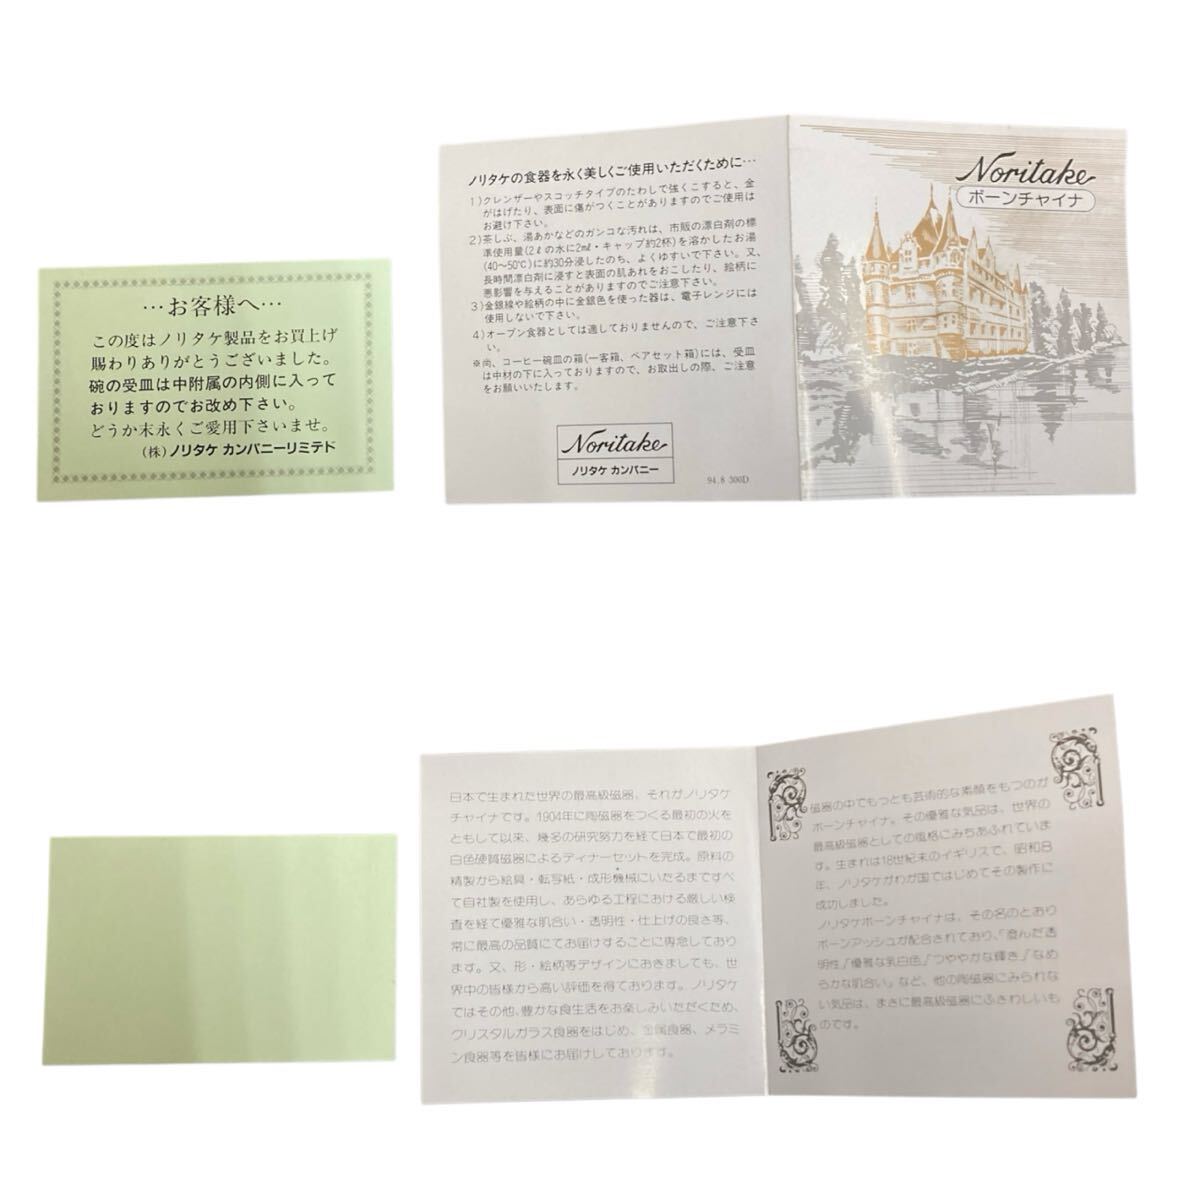 …お客様へ…
この度はノリタケ製品をお買上げ
賜わりありがとうございました。
碗の受皿は中附属の内側に入って
おりますのでお改め下さい。
どうか末永くご愛用下さいませ。
(株)ノリタケ カンパニーリミテド
ノリタケの食器を永く美しくご使用いただくために…
1)クレンザーやスコッチタイプのたわしで強くこすると、金
がはげたり、表面に傷がつくことがありますのでご使用は
お避け下さい。
2)茶しぶ、湯あかなどのガンコな汚れは、市販の漂白剤の標
準使用量(2ℓの水に2mℓ・キャップ約2杯)を溶かしたお湯
(40〜50℃)に約30分浸したのち、よくゆすいで下さい。又、
長時間漂白剤に浸すと表面の肌あれをおこしたり、絵柄に
悪影響を与えることがありますのでご注意下さい。
3)金銀線や絵柄の中に金銀色を使った器は、電子レンジには
使用しないで下さい。
4)オーブン食器としては適しておりませんので、ご注意下さ
い。
※尚、コーヒー碗皿の箱(一客箱、ペアセット箱)には、受皿
は中材の下に入っておりますので、お取出しの際、ご注意
をお願いいたします。
Noritake
ノリタケ カンパニー
94.8 300D
Noritake
ボーンチャイナ
日本で生まれた世界の最高級磁器、それがノリタケ
チャイナです。1904年に陶磁器をつくる最初の火を
ともして以来、幾多の研究努力を経て日本で最初の
白色硬質磁器によるディナーセットを完成。原料の
精製から絵具・転写紙・成形機械にいたるまですべ
て自社製を使用し、あらゆる工程における厳しい検
査を経て優雅な肌合い・透明性・仕上げの良さ等、
常に最高の品質にてお届けすることに専念しており
ます。又、形・絵柄等デザインにおきましても、世
界中の皆様から高い評価を得ております。ノリタケ
ではその他、豊かな食生活をお楽しみいただくため、
クリスタルガラス食器をはじめ、金属食器、メラミ
ン食器等を皆様にお届けしております。
磁器の中でもっとも芸術的な素顔をもつのが
ボーンチャイナ。その優雅な気品は、世界の
最高級磁器としての風格にみちあふれていま
す。生まれは18世紀末のイギリスで、昭和8
年、ノリタケがわが国ではじめてその製作に
成功しました。
ノリタケボーンチャイナは、その名のとおり
ボーンアッシュが配合されており、「澄んだ透
明性」「優雅な乳白色」「つややかな輝き」「なめ
らかな肌合い」など、他の陶磁器にみられな
い気品は、まさに最高級磁器にふさわしいも
のです。